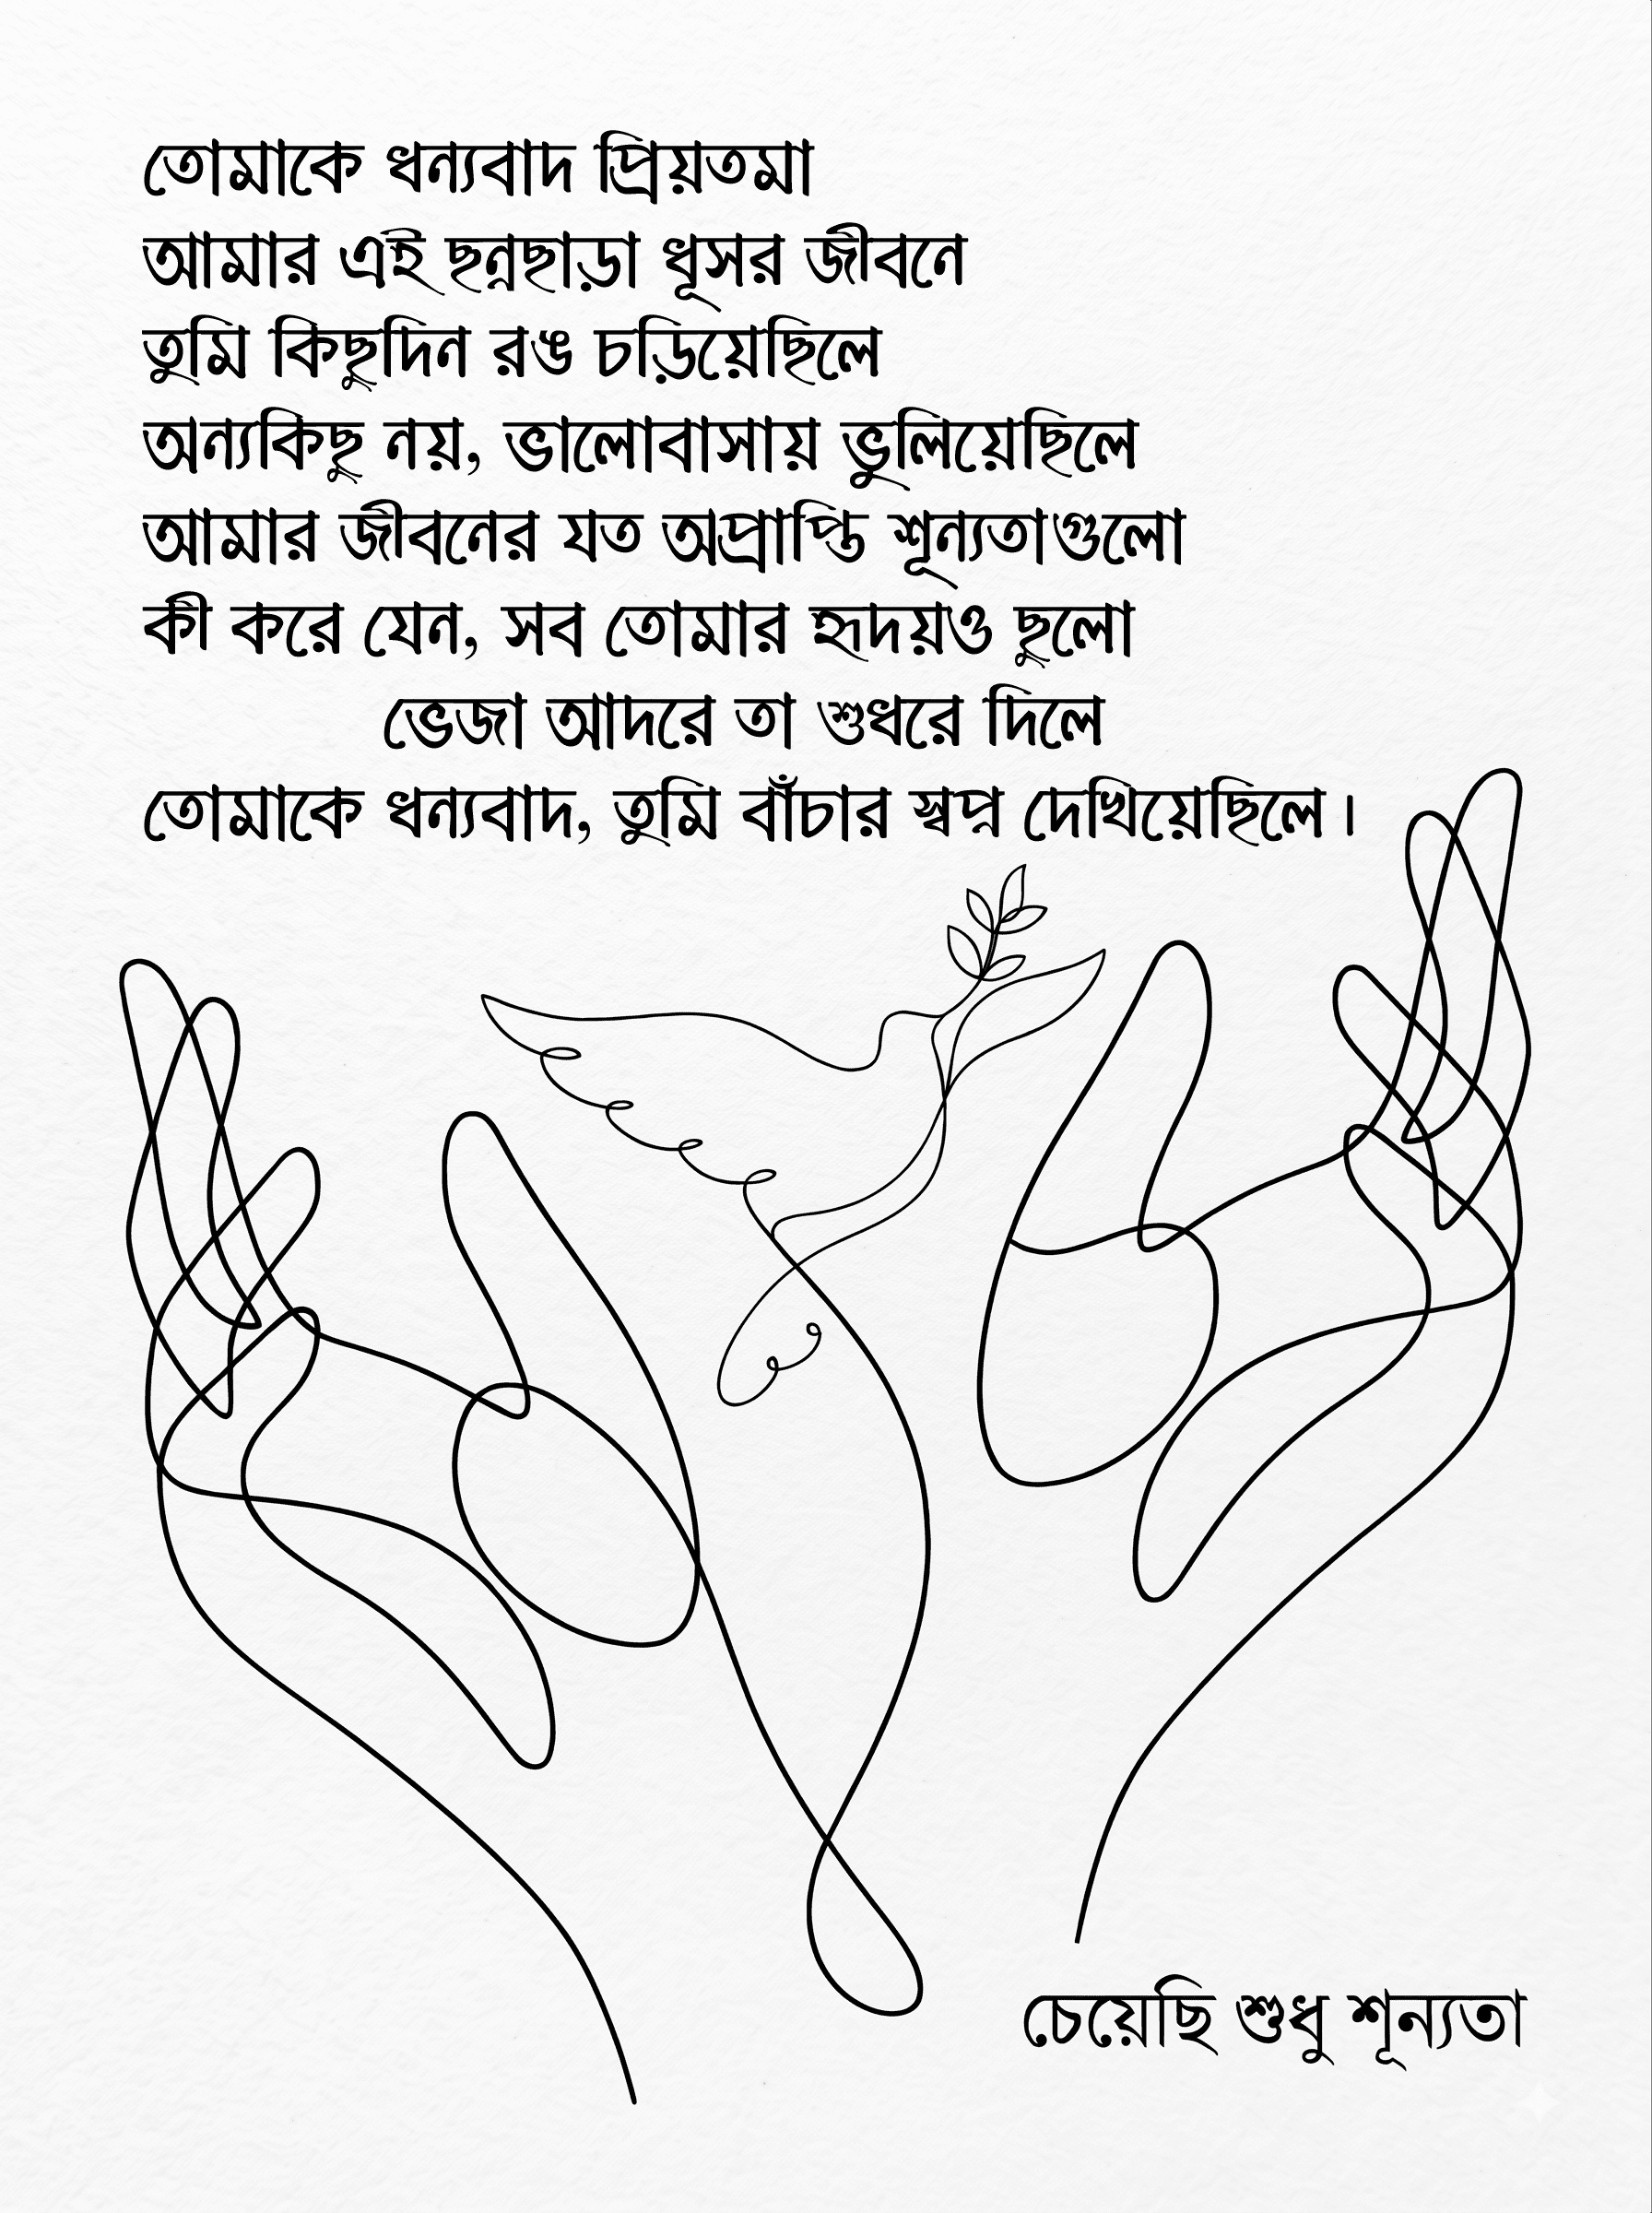 তোমাকে ধন্যবাদ প্রিয়তমা
আমার এই ছন্নছাড়া ধূসর জীবনে
তুমি কিছুদিন রঙ চড়িয়েছিলে
অন্যকিছু নয়, ভালোবাসায় ভুলিয়েছিলে
আমার জীবনের যত অপ্রাপ্তি শূন্যতাগুলো
কী করে যেন, সব তোমার হৃদয়ও ছুলো
ভেজা আদরে তা শুধরে দিলে
তোমাকে ধন্যবাদ, তুমি বাঁচার স্বপ্ন দেখিয়েছিলে।
চেয়েছি শুধু শূন্যতা